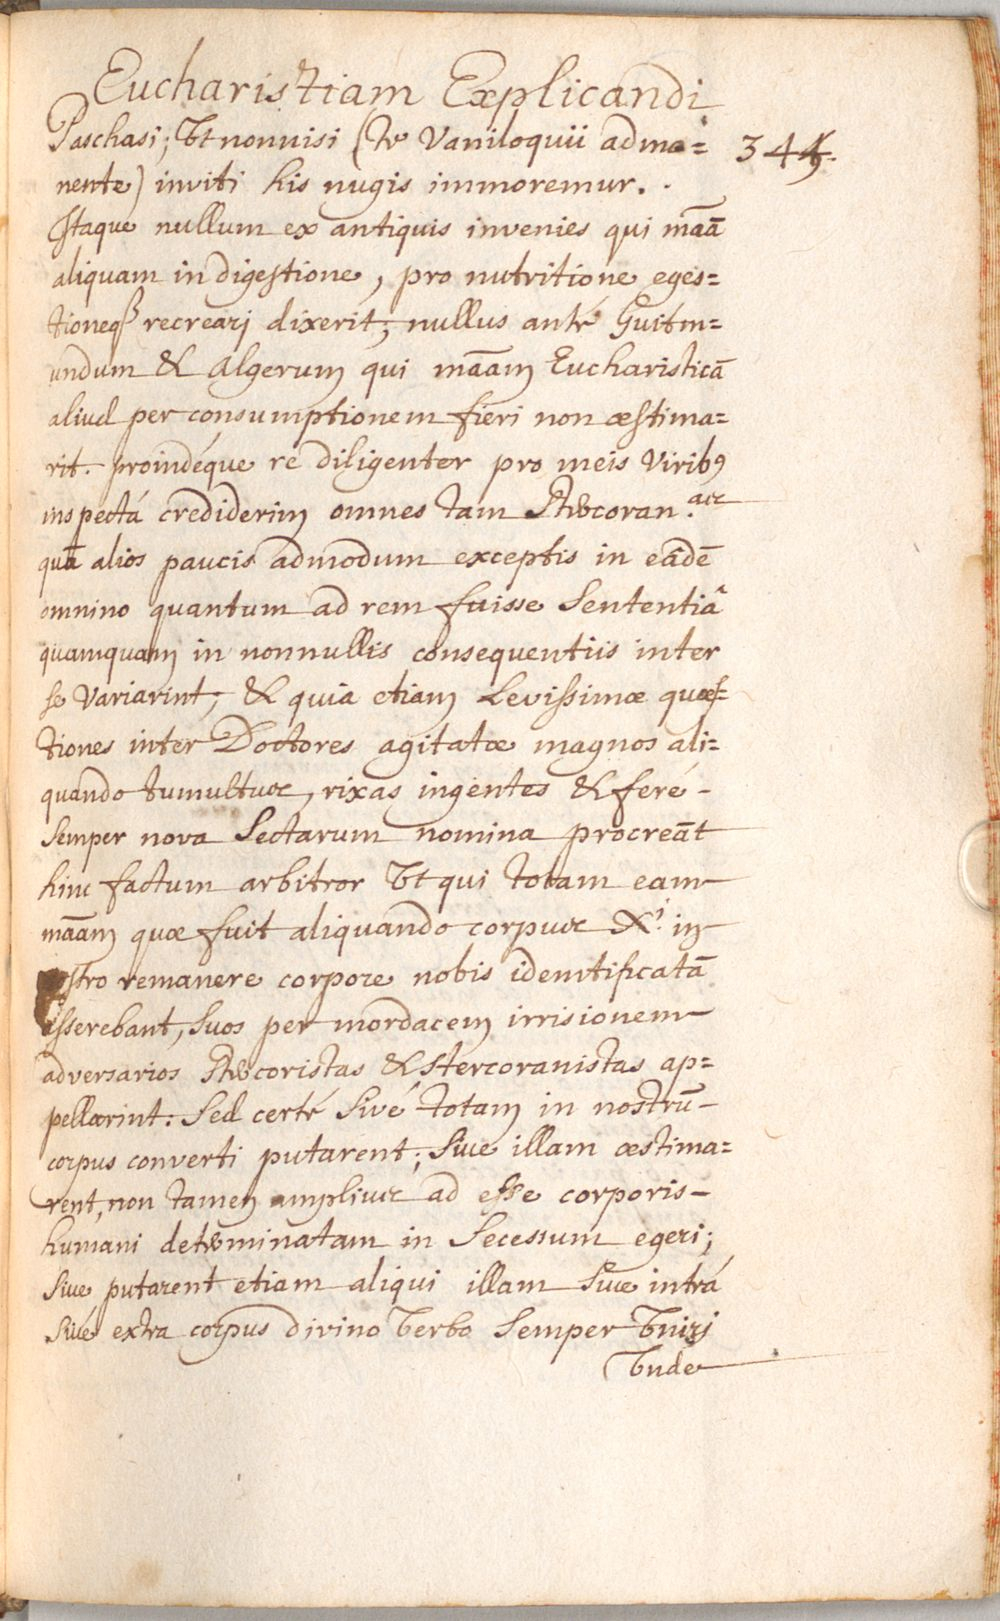 Eucharistiam Explicandi
Paschasi; Vt nonnisi (te Vaniloquii admo=
345.
nente) inviti his nugis immoremur.
Itaque nullum ex antiquis invenies qui mãã
aliquam in digestione, pro nutritione eges=
tioneq₃ recreari dixerit; nullus anté Guitm=
undum & Algerum qui mããm Eucharisticã
aliud per consumptionem fieri non æstima=
rit. proindéque re diligenter pro meis Virib9
inspectá crediderim omnes tam Stercoran.as
quã alios paucis admodum exceptis in eâdẽ
omnino quantum ad rem fuisse Sententiâ
quamquam in nonnullis consequentiis inter
se Variarint; & quia etiam Levissimæ quæs=
tiones inter Doctores agitatæ magnos ali=
quando tumultus, rixas ingentes & feré -
Semper nova Sectarum nomina procreãt
hinc factum arbitror Vt qui totam eam
mããm quæ fuit aliquando corpus Xi. in
nostro remanere corpore nobis identificatã
asserebant, Suos per mordacem irrisionem
adversarios Stercoristas & Stercoranistas ap=
pellarint: Sed certé Sivé totam in nostrũ -
corpus converti putarent; Sive illam æstima=
rent, non tamen amplius ad esse corporis -
humani determinatam in Secessum egeri;
Sive putarent etiam aliqui illam Sive intrá
Sivé extra corpus divino Verbo Semper Vniri
Vnde